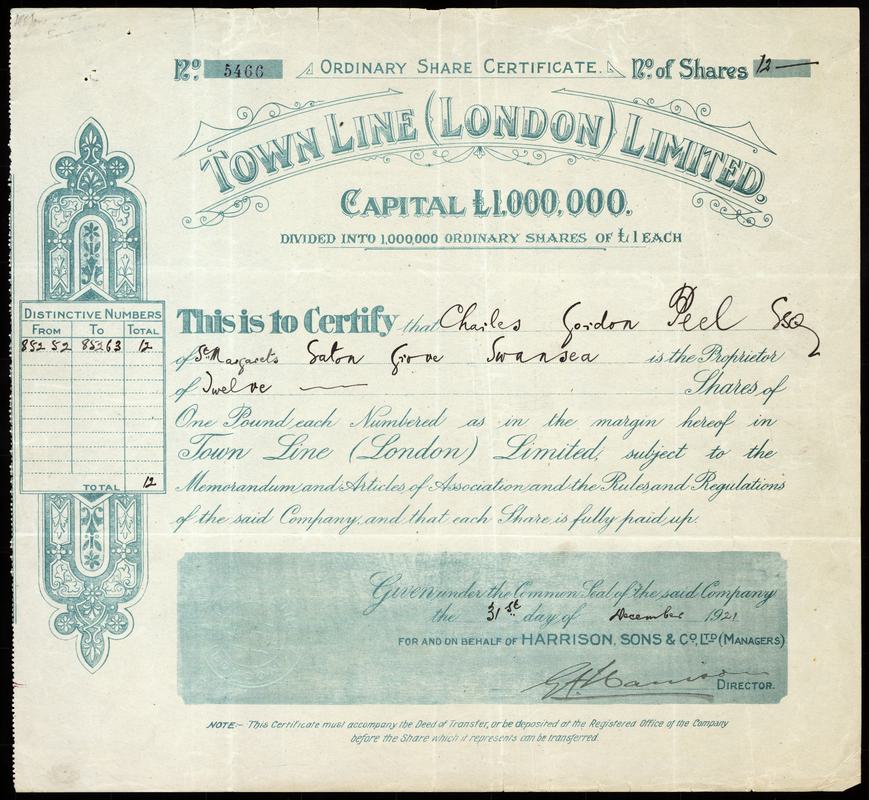 No. 5466 ORDINARY SHARE CERTIFICATE. No. of Shares 12
TOWN LINE (LONDON) LIMITED.
CAPITAL £1,000,000.
DIVIDED INTO 1,000,000 ORDINARY SHARES OF £1 EACH
DISTINCTIVE NUMBERS
FROM TO TOTAL
85252 85263 12
TOTAL 12
This is to Certify that Charles Gordon Peel Esq
of St Margarets Eaton Grove Swansea is the Proprietor
of Twelve Shares of
One Pound each Numbered as in the margin hereof in
Town Line (London) Limited, subject to the
Memorandum and Articles of Association and the Rules and Regulations
of the said Company, and that each Share is fully paid up.
Given under the Common Seal of the said Company
the 31st day of December 1921
FOR AND ON BEHALF OF HARRISON, SONS & CO, LTD (MANAGERS)
DIRECTOR.
NOTE:- This Certificate must accompany the Deed of Transfer, or be deposited at the Registered Office of the Company
before the Share which it represents can be transferred.